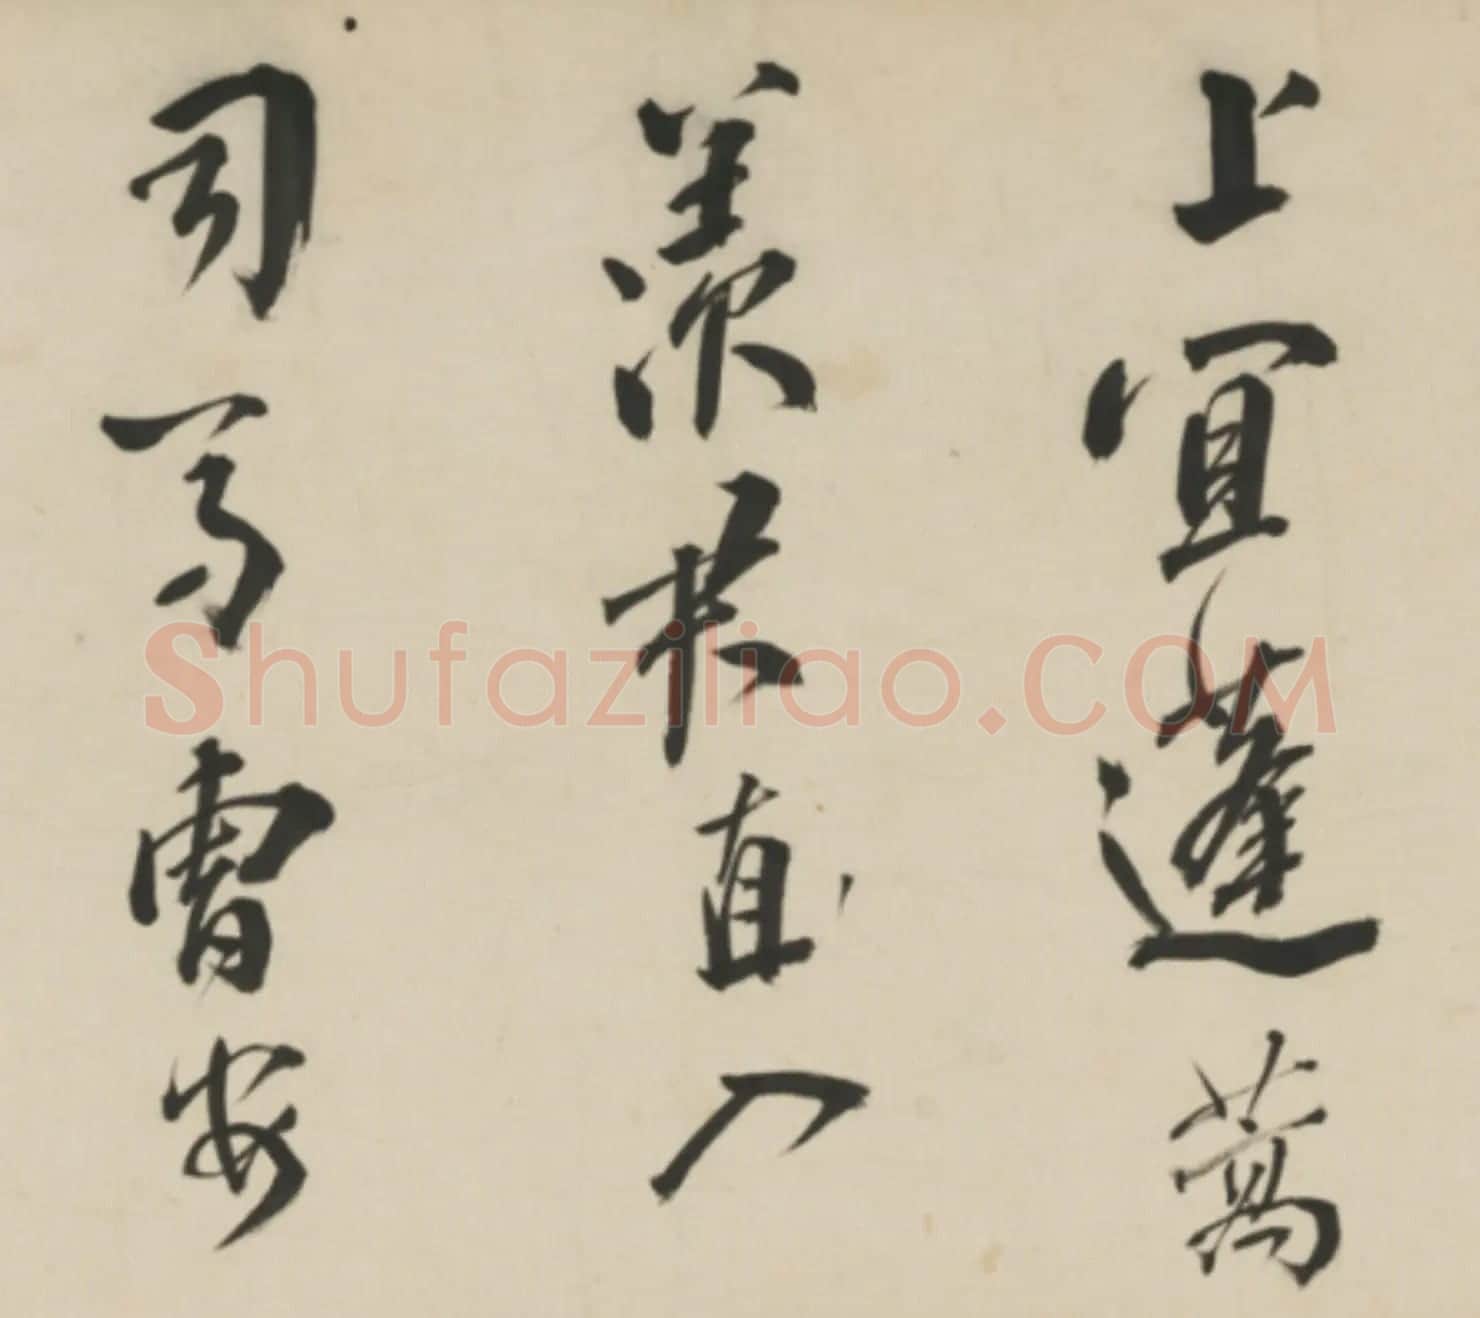 上宜蓬蒿
羨直入
司馬安
Shufaziliao.COM